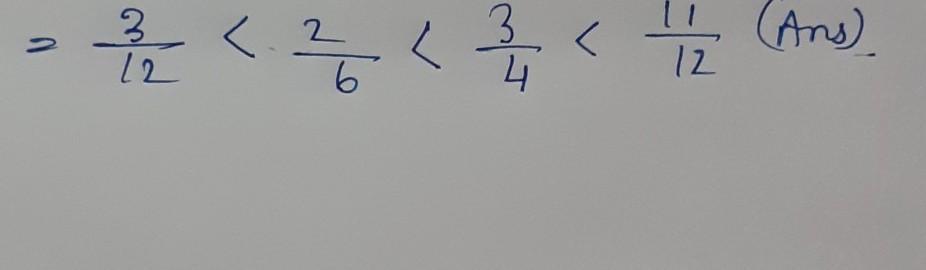 = 3/12 < 2/6 < 3/4 < 11/12 (Ans)